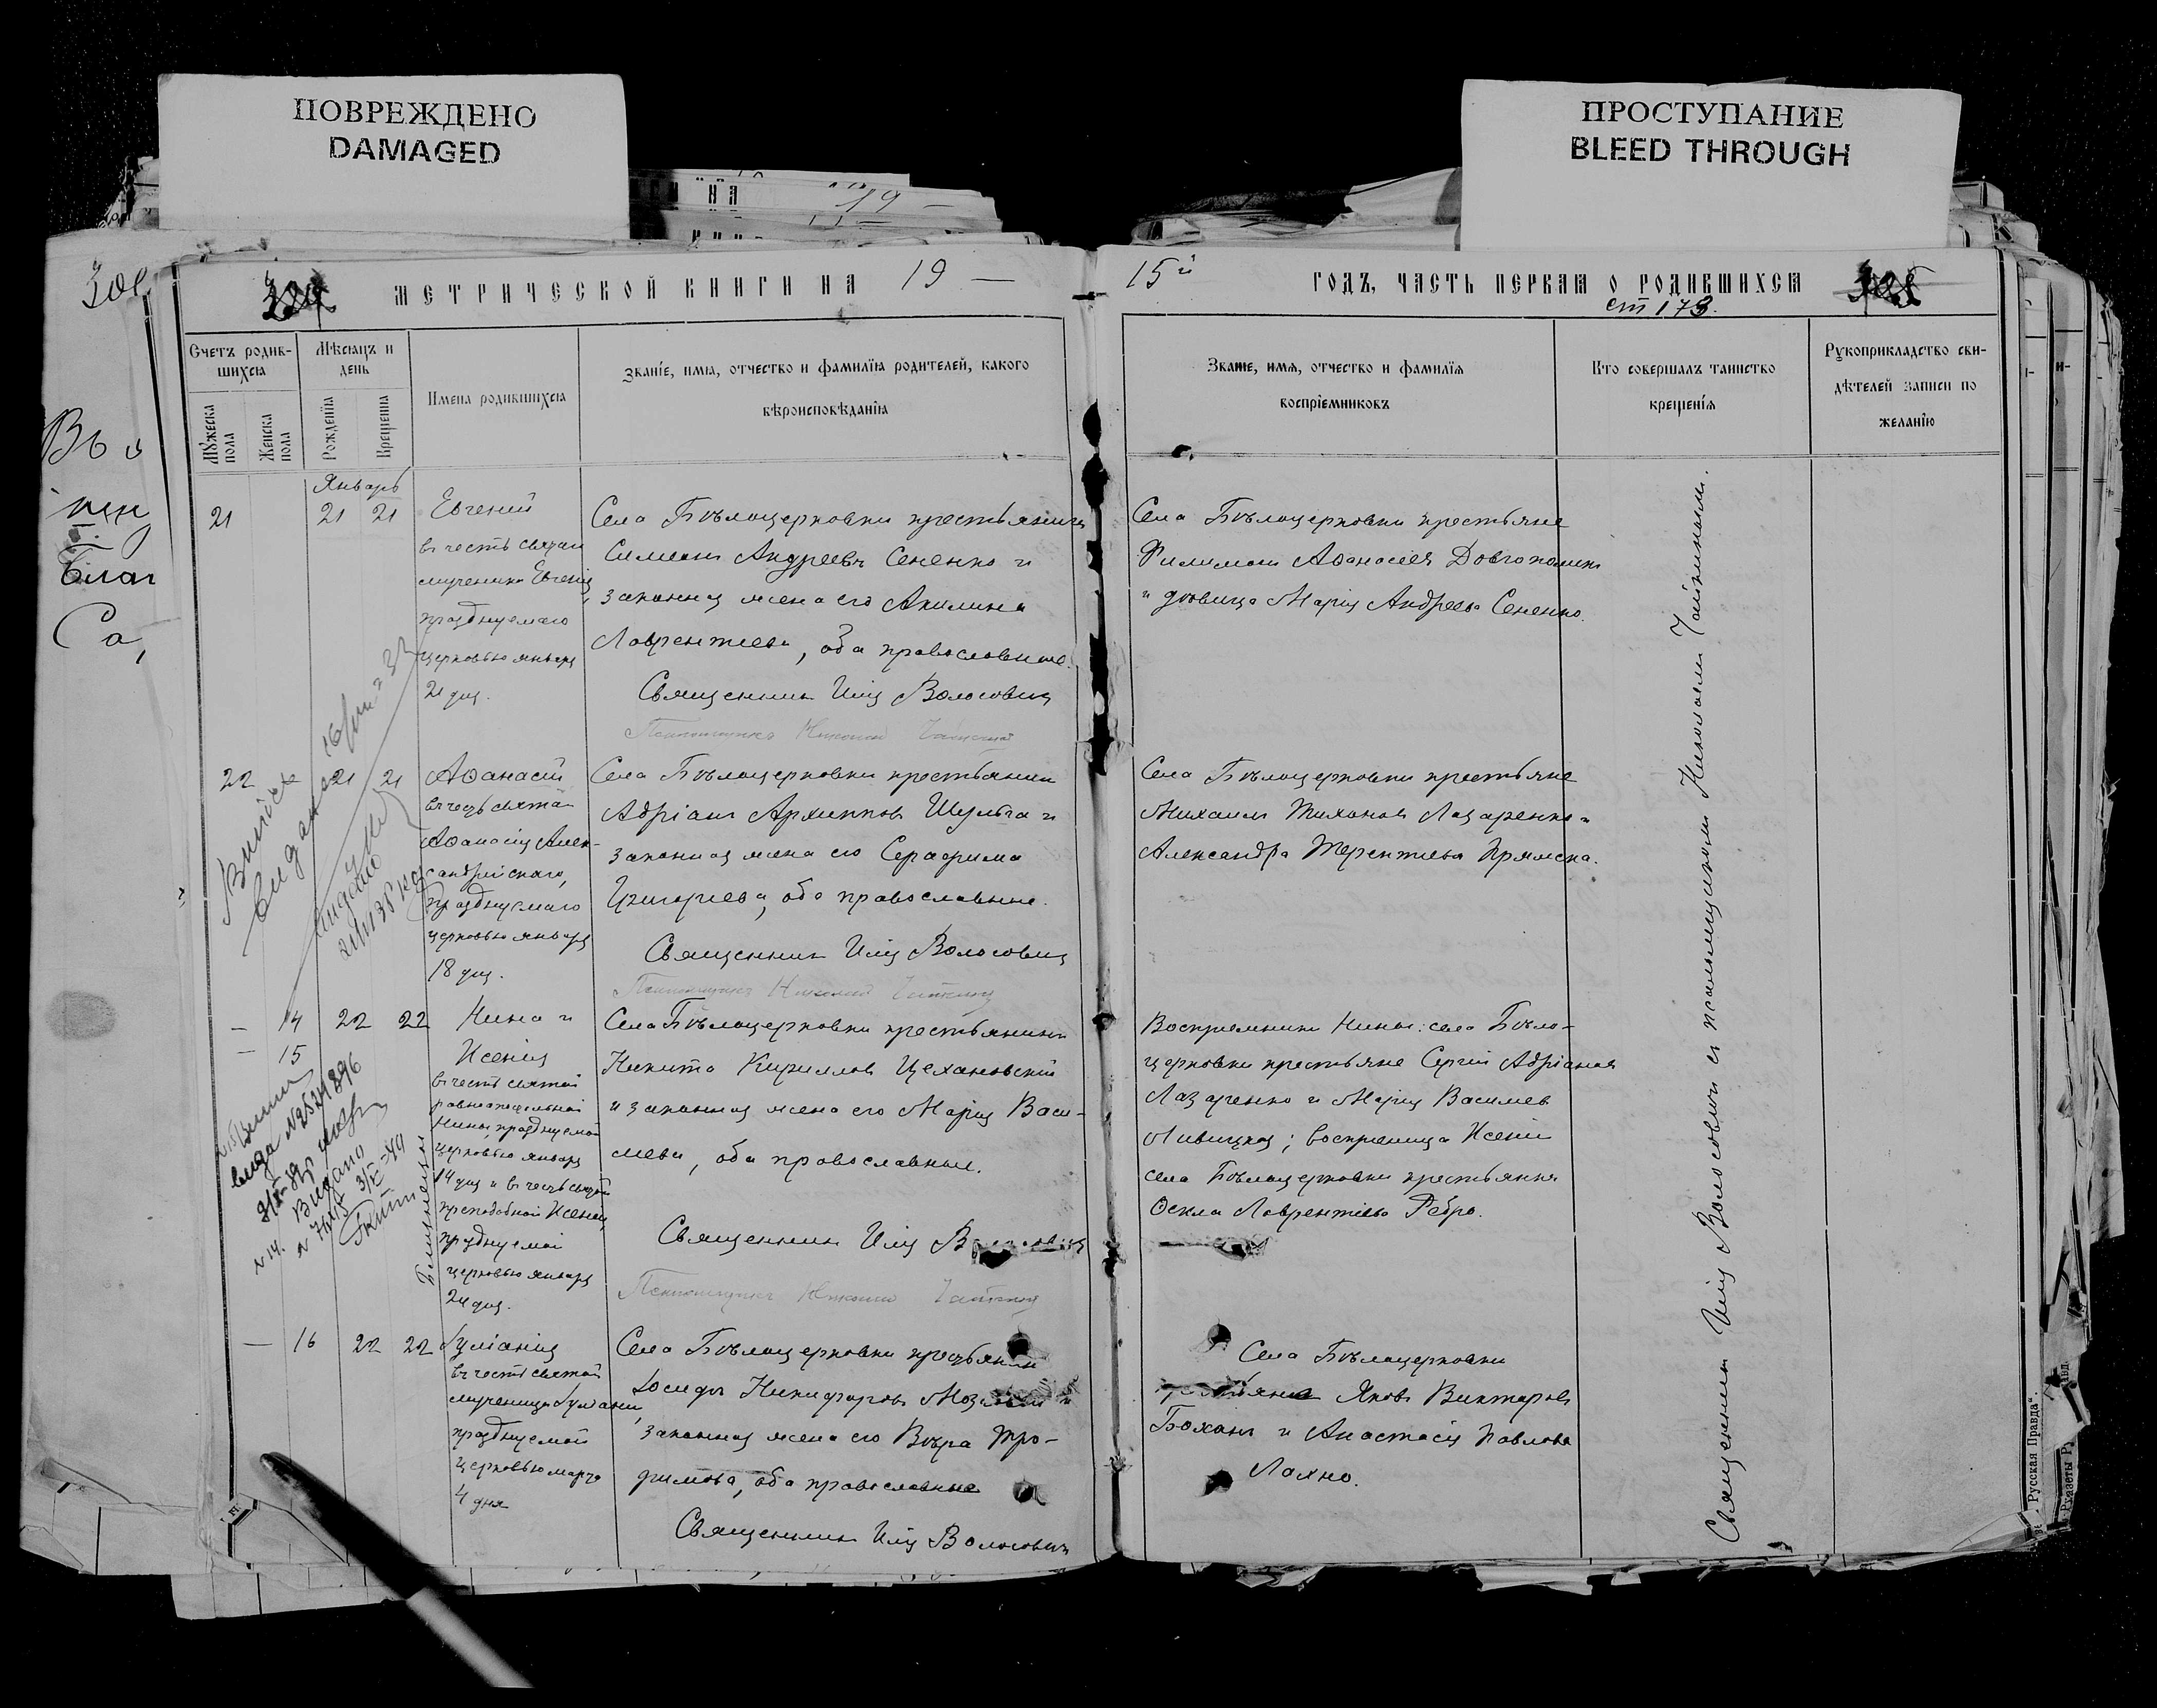 ПОВРЕЖДЕНО
DAMAGED
ПРОСТУПАНИЕ
BLEED THROUGH
МЕТРИЧЕСКОЙ КНИГИ НА 19 —
15й ГОДЪ, ЧАСТЬ ПЕРВАЯ О РОДИВШИХСЯ
ст 173.
Счетъ родив-
шихся
Мужеска
пола
Женска
пола
Мѣсяцъ и
день
Рожденія
Крещенія
Имена родившихся
Званіе, имя, отчество и фамилія родителей, какого
вѣроисповѣданія
Званіе, имя, отчество и фамилія
воспріемниковъ
Кто совершалъ таинство
крещенія
Рукоприкладство сви-
дѣтелей записи по
желанію
Январь
21 21 21
Евгеній
въ честь
мученика Евгенія,
празднуемаго
церковью января
21 дня.
Села Бѣлоцерковки крестьянинъ
Симеонъ Андреевъ Сененко и
законная жена его Акилина
Лаврентіева, оба православные.
Священникъ Илія Волосовичъ
Села Бѣлоцерковки крестьяне
Филимонъ Аѳанасіевъ
и дѣвица Марія Андреева Сененко.
22 21 21
Аѳанасій
въ честь
Аѳанасія Алек-
сандрійскаго,
празднуемаго
церковью января
18 дня.
Села Бѣлоцерковки крестьянинъ
Адріанъ Архипповъ Шульга и
законная жена его Серафима
Григорьева, оба православные.
Священникъ Илія Волосовичъ
Села Бѣлоцерковки крестьяне
Михаилъ Тихоновъ Лазаренко и
Александра Терентіева
— 14 22 22
— 15
Нина и
Ксенія
въ честь святой
равноапостольной
Нины, празднуемой
церковью января
14 дня и въ честь святой
преподобной Ксеніи,
празднуемой
церковью января
24 дня.
Близнецы
Села Бѣлоцерковки крестьянинъ
Никита Кирилловъ Цехановскій
и законная жена его Марія Васи-
лева, оба православные.
Священникъ Илія
Воспріемники Нины: села Бѣло-
церковки крестьяне Сергій Адріановъ
Лазаренко и Марія Василева
Ливицкая; воспріемница Ксеніи
села Бѣлоцерковки крестьянка
Ѳекла Лаврентіева Ребро.
— 16 22 22
Іуліанія
въ честь святой
мученицы Іуліаніи,
празднуемой
церковью марта
4 дня
Села Бѣлоцерковки крестьянинъ
Іосифъ Никифоровъ
законная жена его Вѣра Тро-
фимова, оба православные
Священникъ Илія Волосовичъ
Села Бѣлоцерковки
Яковъ Викторовъ
Боханъ и Анастасія Павлова
Лахно.
Священникъ Илія Волосовичъ съ псаломщикомъ Николаемъ
Русская Правда".